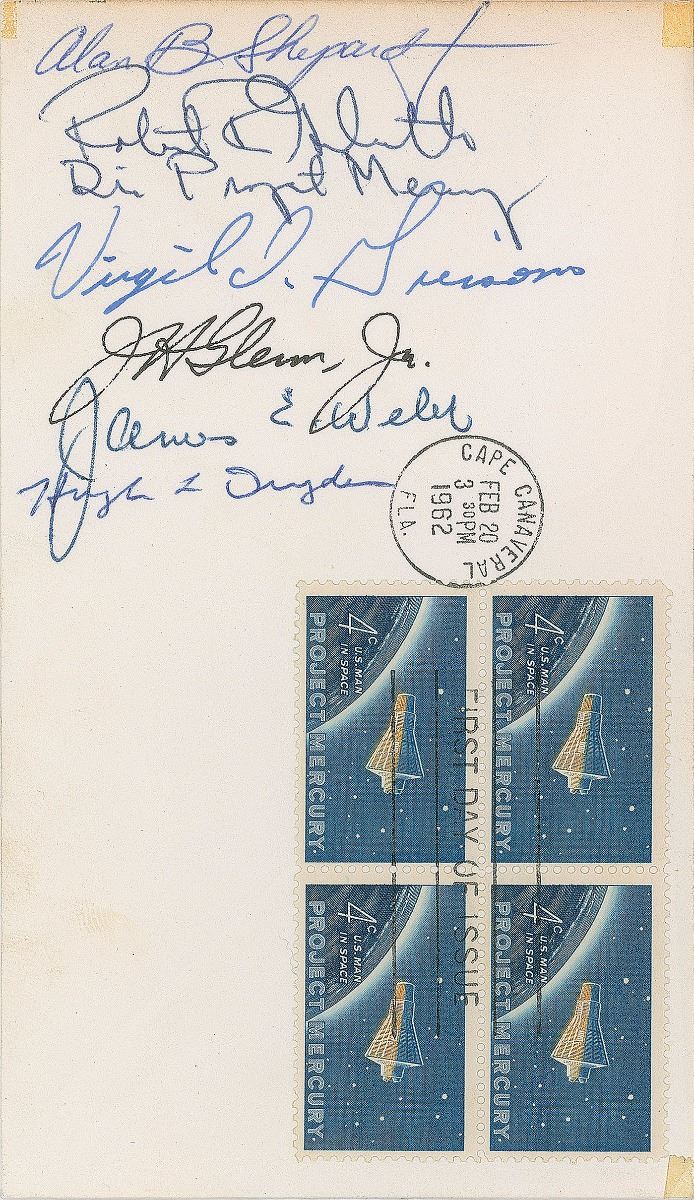 Alan B Shepard Jr
Robert R Gilruth
Dir Project Mercury
Virgil I. Grissom
J H Glenn, Jr.
James E Webb
Hugh L Dryden
CAPE CANAVERAL
FEB 20
3 30 PM
1962
FLA.
4c
U.S. MAN
IN SPACE
PROJECT MERCURY
4c
U.S. MAN
IN SPACE
PROJECT MERCURY
FIRST DAY OF ISSUE
4c
U.S. MAN
IN SPACE
PROJECT MERCURY
4c
U.S. MAN
IN SPACE
PROJECT MERCURY